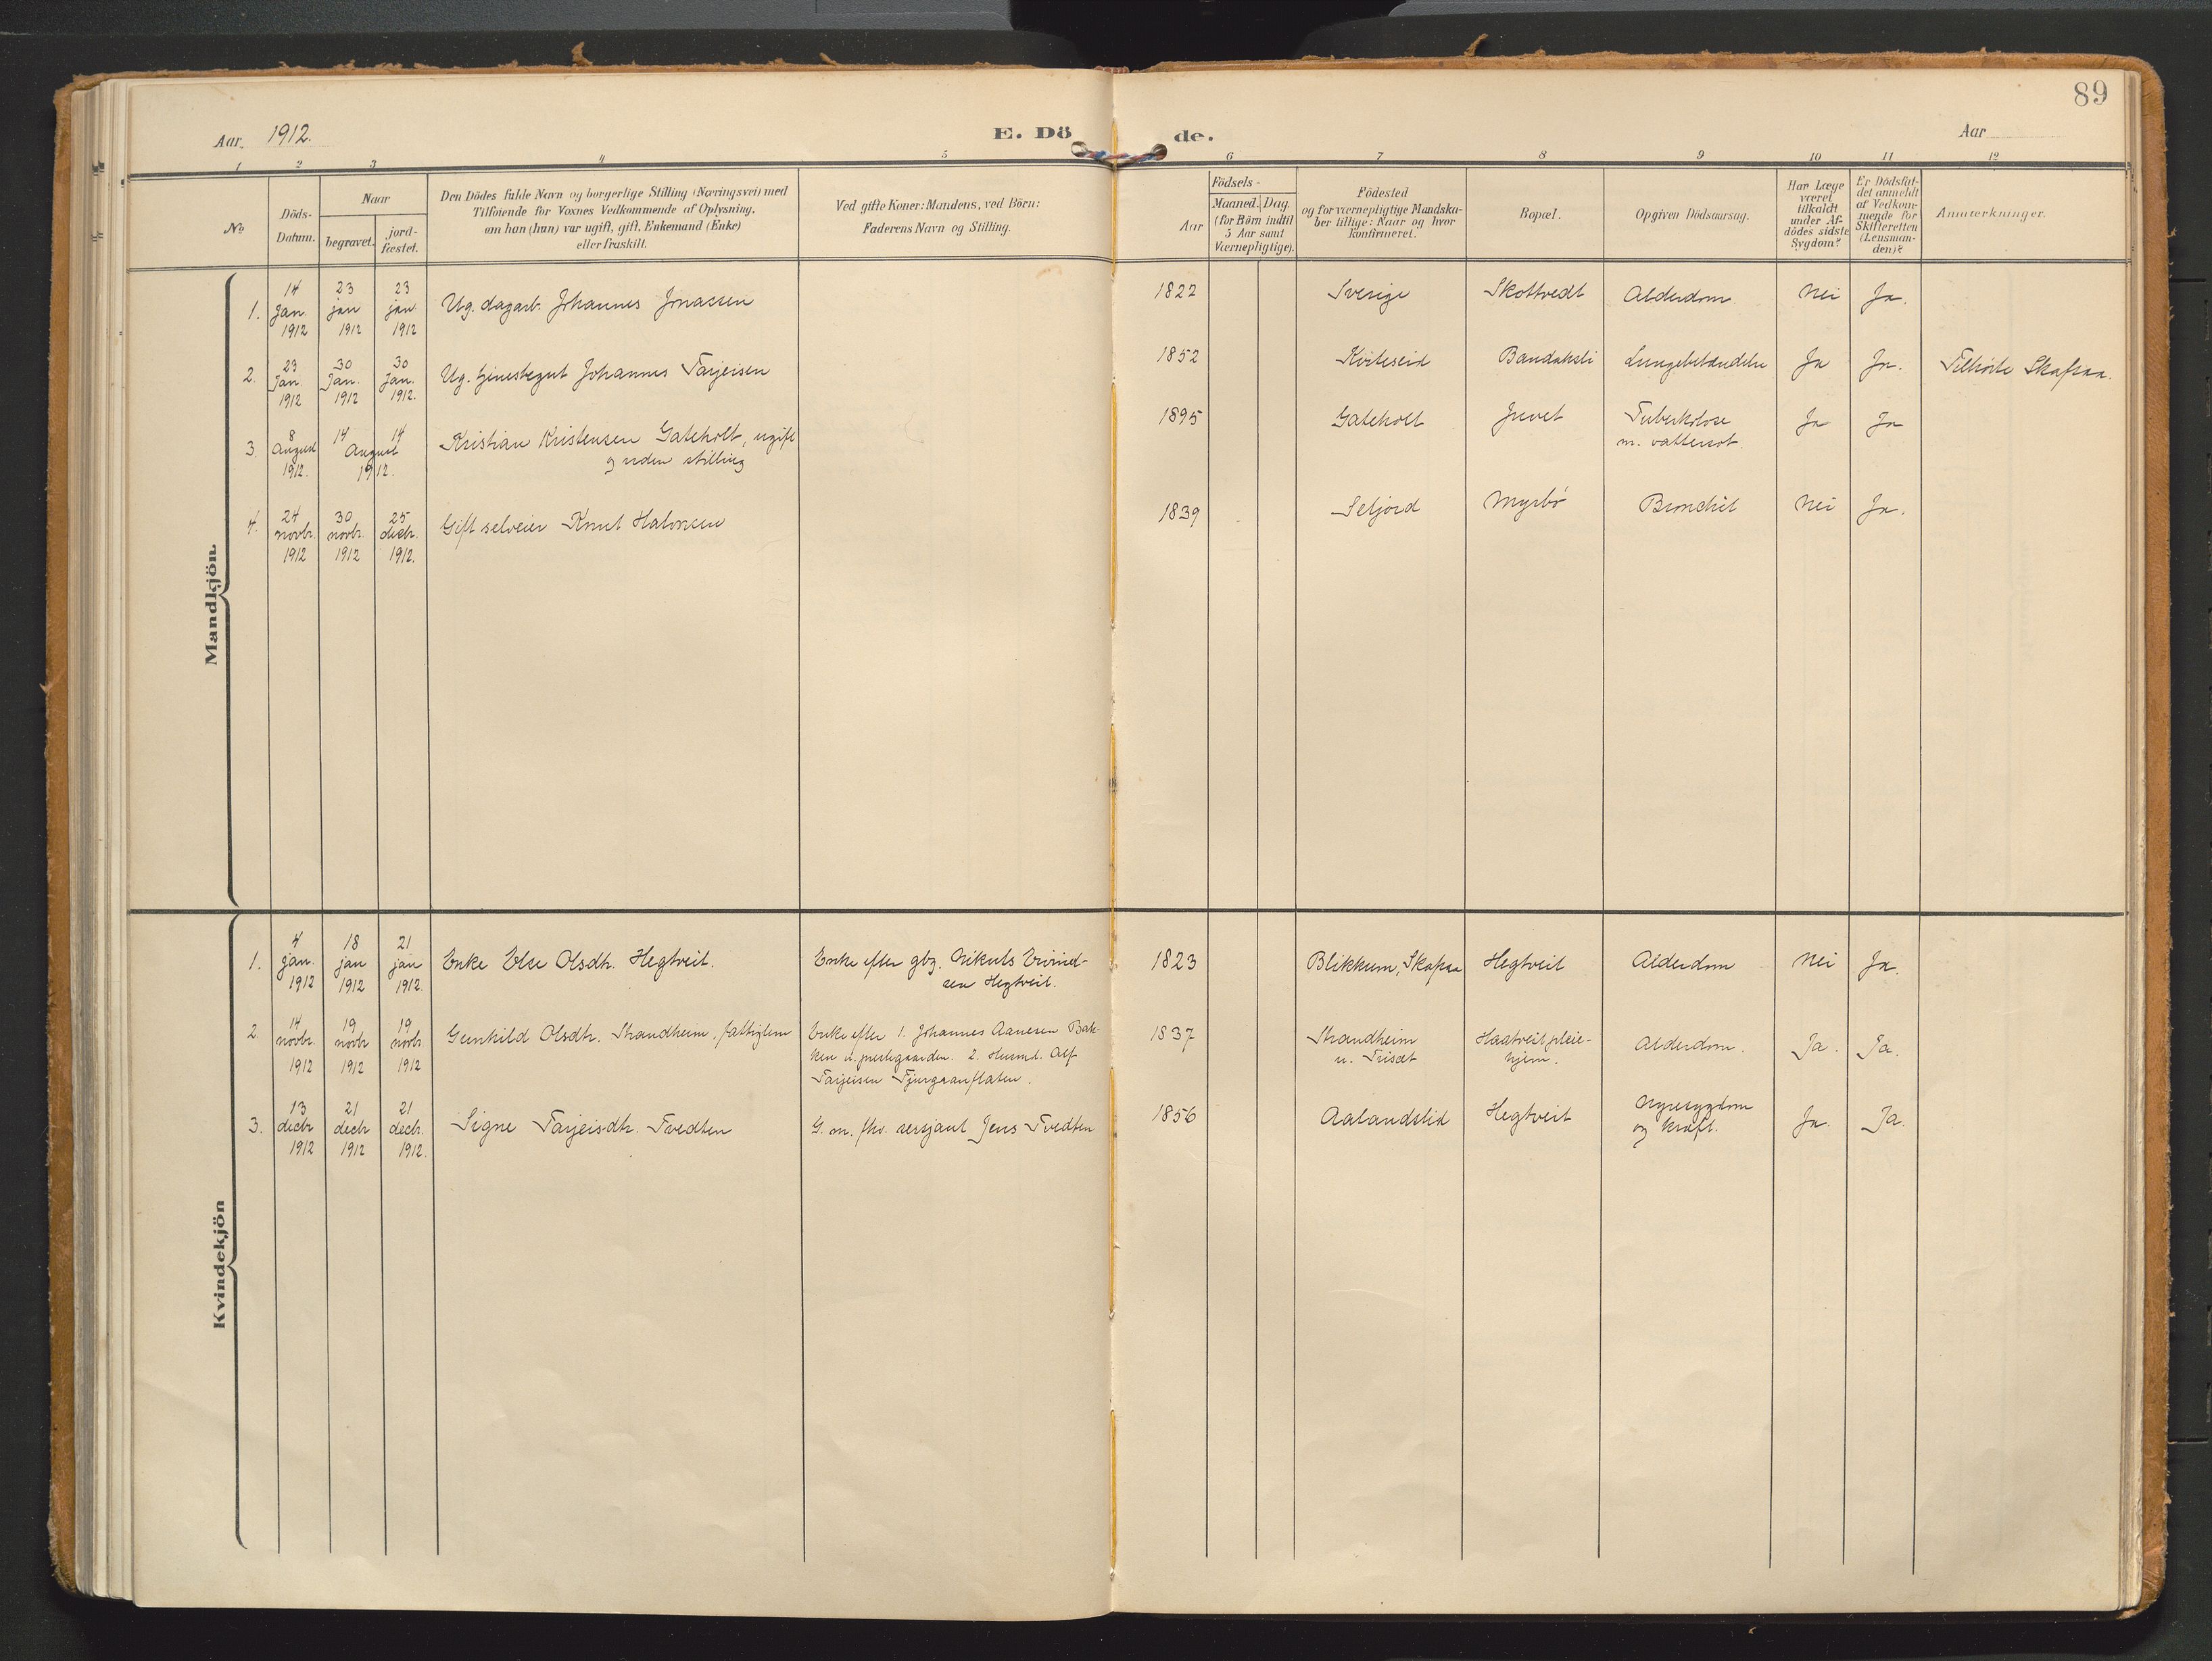 89
Aar 1912.
E. Dö de.
Aar
1 2 3 4 5 6 7 8 9 10 11 12
No
Döds-
Datum.
Naar
begravet.
jord-
fæstet.
Den Dödes fulde Navn og borgerlige Stilling (Næringsvei) med
Tilföiende for Voxnes Vedkommende af Oplysning.
om han (hun) var ugift, gift, Enkemand (Enke)
eller fraskilt.
Ved gifte Koner: Mandens, ved Börn:
Faderens Navn og Stilling.
Födsels-
Aar
Maaned. Dag.
(for Börn indtil
5 Aar samt
Værnepligtige).
Födested
og for værnepligtige Mandska-
ber tillige: Naar og hvor
konfirmeret.
Bopæl.
Opgiven Dödsaarsag.
Har Læge
været
tilkaldt
under Af-
dödes sidste
Sygdom?
Er Dödsfal-
det anmeldt
af Vedkom-
mende for
Skifteretten
(Lensman-
den)?
Anmærkninger.
Mandkjön.
1. 14 Jan. 1912 23 jan 1912 23 jan 1912 Ug. dagarb. Johannes Jonassen 1822 Sverige Skottvedt Alderdom. Nei Ja.
2. 23 Jan. 1912 30 Jan. 1912 30 Jan. 1912. Ug. tjenestegut Johannes Tarjeisen 1852 Kviteseid Bandaksli Lungebetændelse Ja Ja. Tilhörte Skafsaa.
3. 8 August 1912. 14 14 August 1912. Kristian Kristensen Gateholt, ugift
og uden stilling 1895 Gateholt Juvet Tuberkolose
m. vattersot. Ja Ja
4. 24 novbr. 1912 30 novbr. 1912 25 decbr. 1912. Gift selveier Knut Halvorsen 1839 Seljord Myrbö Bronchit Nei Ja.
Kvindekjön
1. 4 jan. 1912 18 jan 1912 21 jan 1912. Enke Else Olsdtr. Hegtveit. Enke efter gbr. Nikuls Eivind-
sen Hegtveit. 1823 Blikkum, Skafsaa Hegtveit Alderdom Nei Ja.
2 14 novbr. 1912 19 novbr 1912 19 novbr. 1912 Gunhild Olsdtr. Strandheim, fattiglem Enke efter 1. Johannes Aanesen Bak-
ken u. prestegaarden. 2. Husmd. Alf
Tarjeisen Tjurgaanflaten. 1837 Strandheim
u. Trisæt Haatveit pleie-
hjem. Alderdom. Ja. Ja.
3. 13 decbr 1912 21 decbr 1912 21 decbr. 1912. Signe Tarjeisdtr. Tvedten G. m. fhv. sersjant Jens Tvedten 1856 Aalandslid Hegtveit Nyresygdom
og kræft. Ja. Ja.